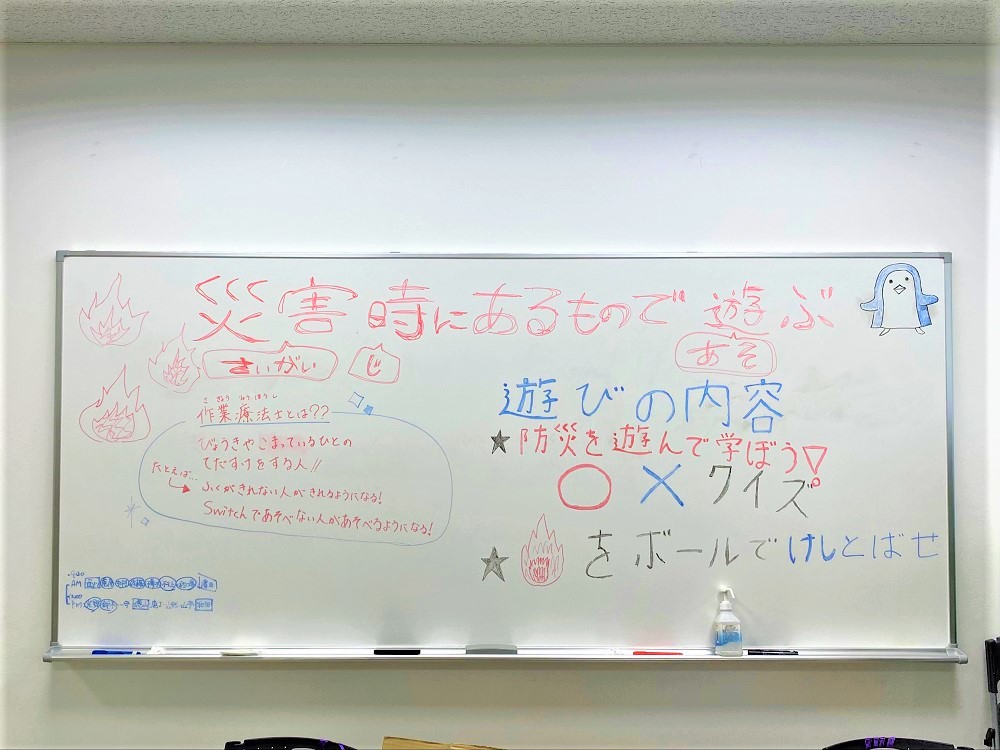 災害時にあるもので遊ぶ
さいがい じ あそ
さ ぎょう りょうほう し
作業療法士とは??
びょうきやこまっているひとの
てだすけをする人!!
たとえば...
ふくがきれない人がきれるようになる!
Switchであそべない人があそべるようになる!
AM
PM
遊びの内容
★防災を遊んで学ぼう
○×クイズ
★をボールでけしとばせ